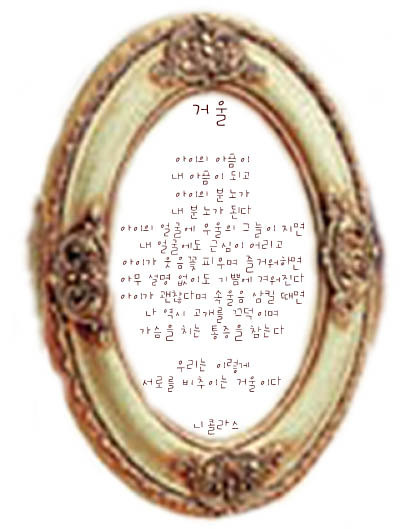 거울
아이의 아픔이
내 아픔이 되고
아이의 분노가
내 분노가 된다
아이의 얼굴에 우울의 그늘이 지면
내 얼굴에도 근심이 어리고
아이가 웃음꽃 피우며 즐거워하면
아무 설명 없이도 기쁨에 겨워진다
아이가 괜찮다며 속울음 삼킬 때면
나 역시 고개를 끄덕이며
가슴을 치는 통증을 참는다
우리는 이렇게
서로를 비추이는 거울이다
니콜라스